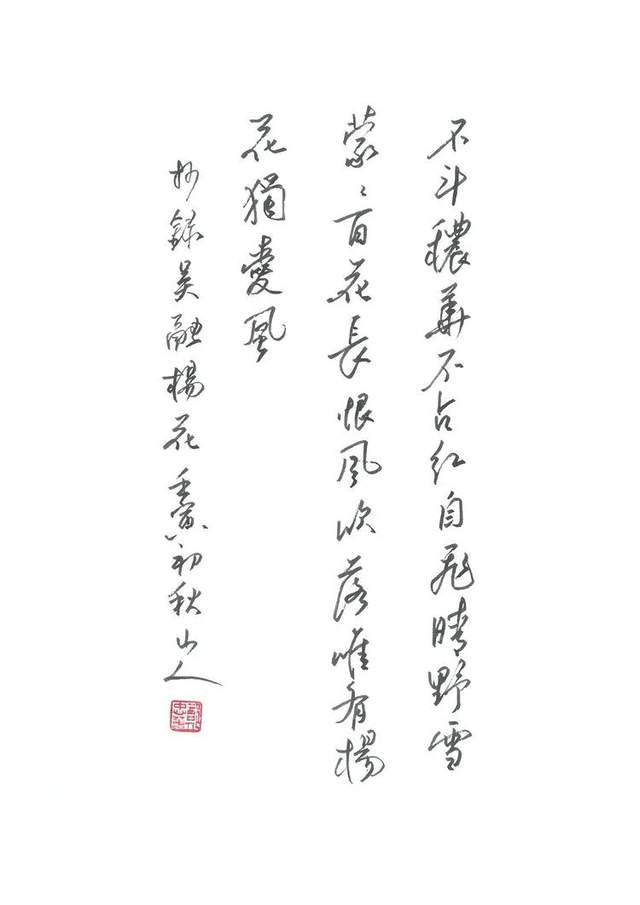 不斗穠華不占红自飛晴野雪
蒙〻百花長恨風吹落唯有楊
花獨愛風
抄録吴融楊花壬寅初秋山人